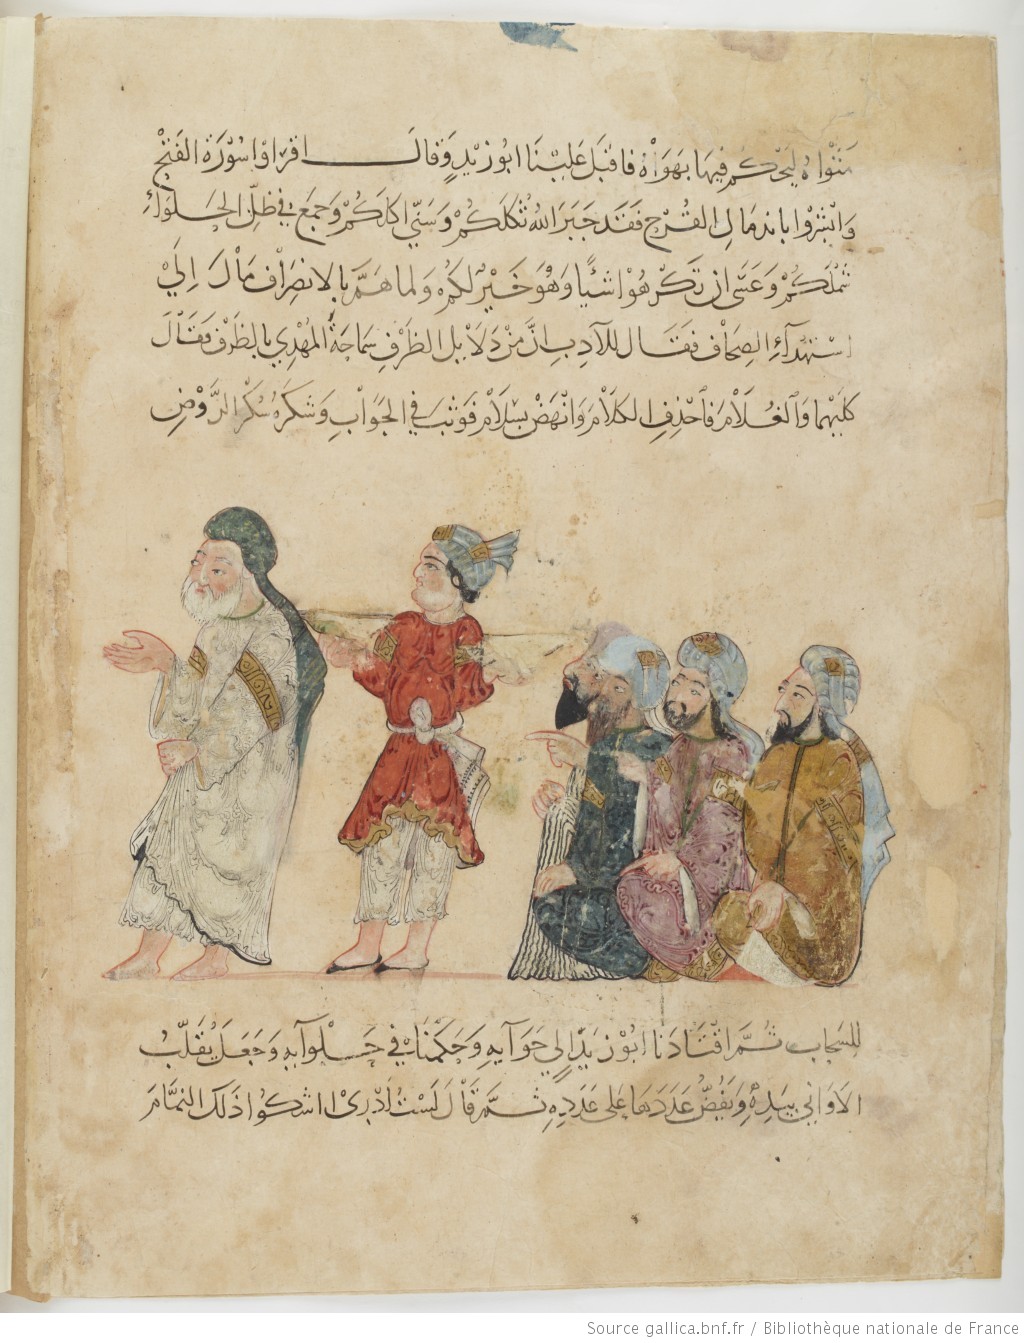 مثواه ليحكم فيها بهواه فاقبل علينا ابوزيد وقال اقراوا سورة الفتح
وابشروا باندمال القرح فقد جبر الله ثكلكم وسنى اكلكم وجمع في ظل الحلواء
شملكم وعسى ان تكرهوا شيا وهو خير لكم ولما هم بالانصراف مال الي
استهداء الصحاف فقال للادب ان من دلايل الظرف سماحة المهدي بالظرف فقال
كليهما والغلام فاحذف الكلام وانهض بسلام فوثب في الجواب وشكره شكر الروض
للسحاب ثم اقتادنا ابوزيد الي حوايه وحكمنا في حلوايه وجعل يقلب
الاواني بيده ويفض عددها على عدده ثم قال لست ادري ااشكوا ذلك النمام
Source gallica.bnf.fr / Bibliothèque nationale de France